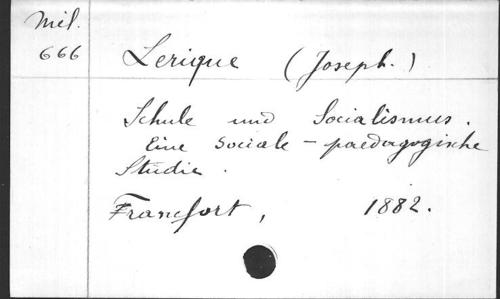 Mél.
666
Lerique (Joseph.)
Schule und Socialismus.
Eine sociale-paedagogische
Studie.
Francfort, 1882.